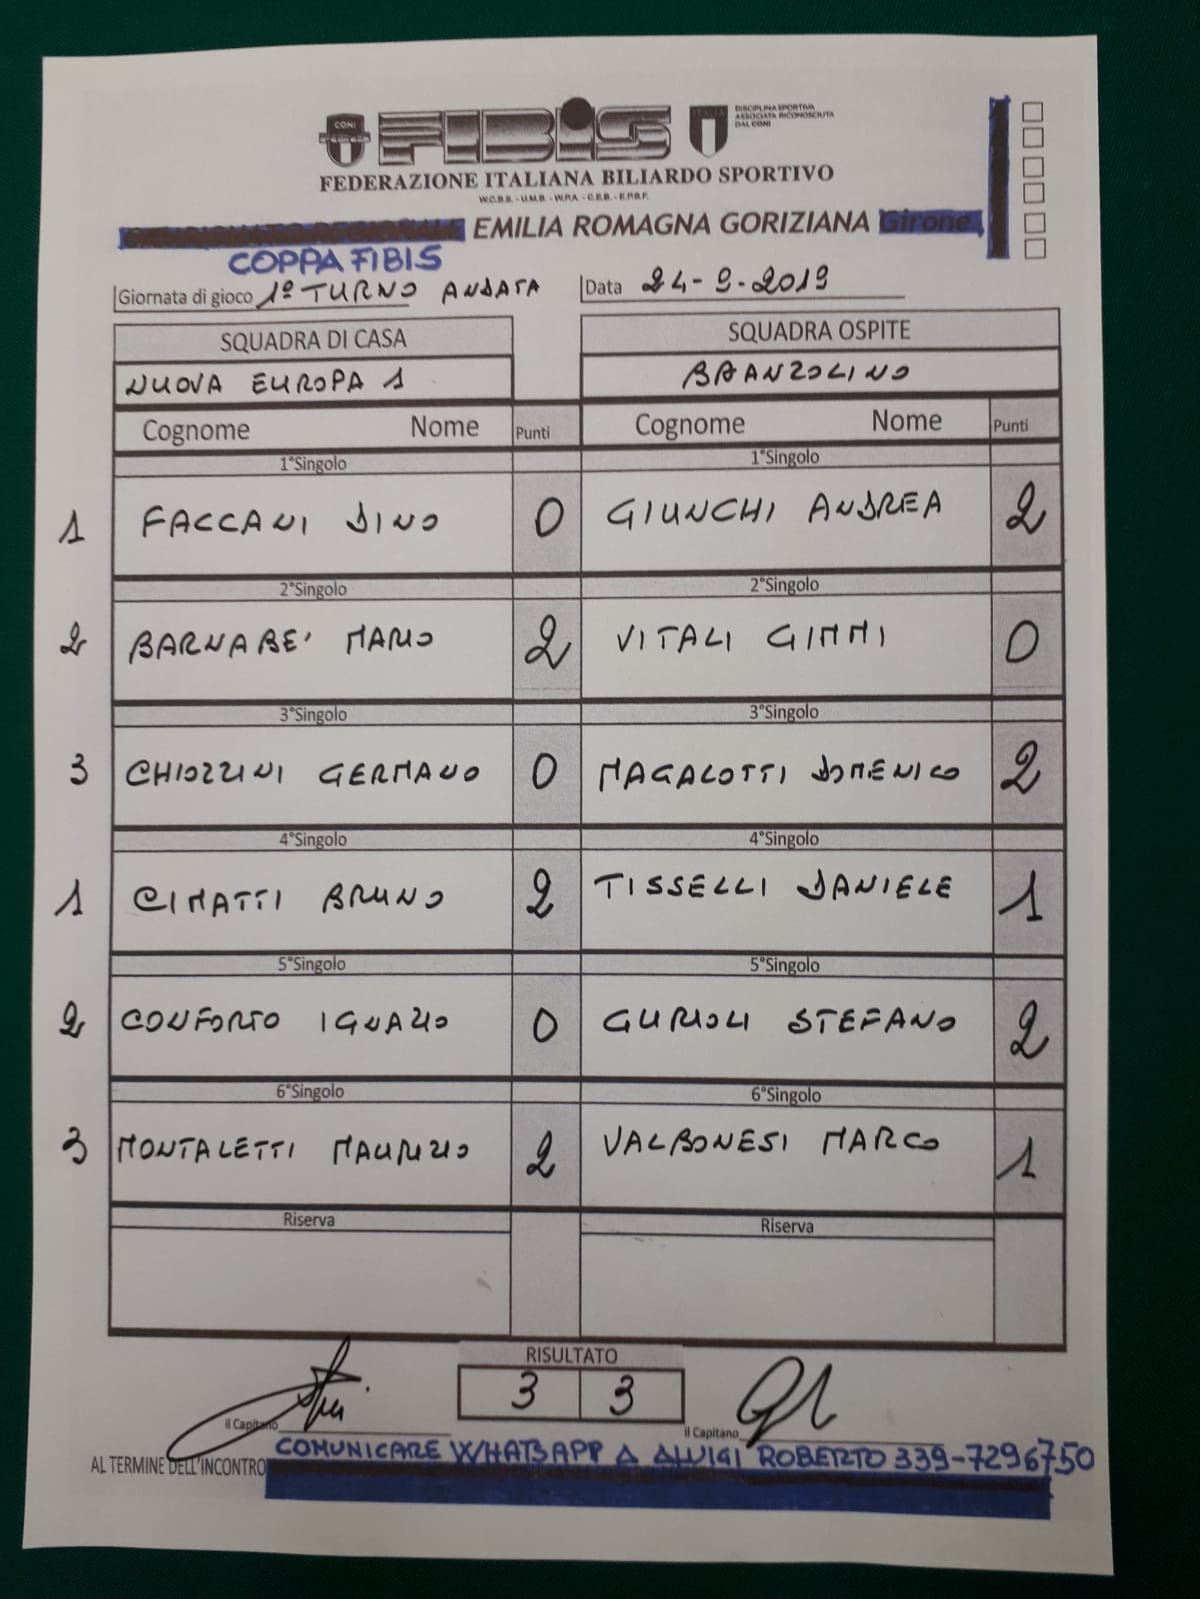 CONI
FIBIS
ITALIA
DISCIPLINA SPORTIVA
ASSOCIATA RICONOSCIUTA
DAL CONI
FEDERAZIONE ITALIANA BILIARDO SPORTIVO
W.C.B.S. - U.M.B. - W.P.A. - C.E.B. - E.P.B.F.
EMILIA ROMAGNA GORIZIANA Girone
COPPA FIBIS
Giornata di gioco 1° TURNO ANDATA Data 24-9-2019
SQUADRA DI CASA SQUADRA OSPITE
NUOVA EUROPA 1 BRANZOLINO
Cognome Nome Punti Cognome Nome Punti
1°Singolo 1°Singolo
1 FACCANI DINO 0 GIUNCHI ANDREA 2
2°Singolo 2°Singolo
2 BARNABE' MARIO 2 VITALI GIMMI 0
3°Singolo 3°Singolo
3 CHIOZZINI GERMANO 0 MAGALOTTI DOMENICO 2
4°Singolo 4°Singolo
1 CIMATTI BRUNO 2 TISSELLI DANIELE 1
5°Singolo 5°Singolo
2 CONFORTO IGNAZIO 0 GURIOLI STEFANO 2
6°Singolo 6°Singolo
3 MONTALETTI MAURIZIO 2 VALBONESI MARCO 1
Riserva Riserva
RISULTATO
3 3
il Capitano il Capitano
COMUNICARE WHATSAPP A ALVIGI ROBERTO 339-7296750
AL TERMINE DELL'INCONTRO